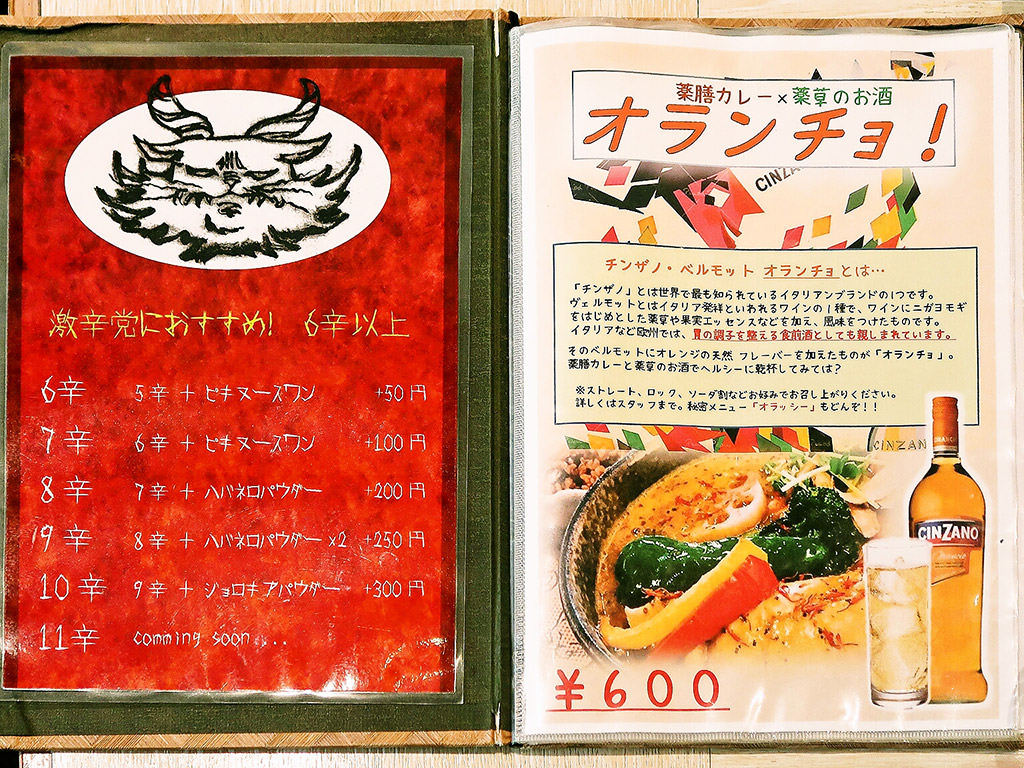 激辛党におすすめ! 6辛以上
6辛 5辛 + ピキヌーズワン +50円
7辛 6辛 + ピキヌーズワン +100円
8辛 7辛 + ハバネロパウダー +200円
9辛 8辛 + ハバネロパウダー ×2 +250円
10辛 9辛 + ジョロキアパウダー +300円
11辛 comming soon....
薬膳カレー×薬草のお酒
オランチョ!
CINZA
チンザノ・ベルモット オランチョとは…
「チンザノ」とは世界で最も知られているイタリアンブランドの1つです。
ヴェルモットとはイタリア発祥といわれるワインの1種で、ワインにニガヨモギ
をはじめとした薬草や果実エッセンスなどを加え、風味をつけたものです。
イタリアなど欧州では、胃の調子を整える食前酒としても親しまれています。
そのベルモットにオレンジの天然 フレーバーを加えたものが「オランチョ」。
薬膳カレーと薬草のお酒でヘルシーに乾杯してみては?
※ストレート、ロック、ソーダ割などお好みでお召し上がりください。
詳しくはスタッフまで。秘密メニュー「オラッシー」もどんぞ!!
CINZAN
CINZANO
¥600